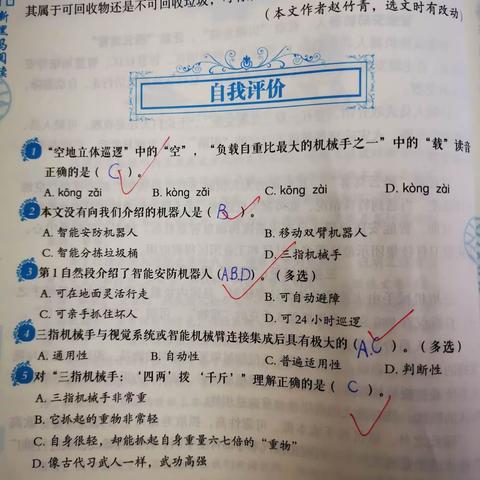 其属于可回收物还是不可回收垃圾，
（本文作者赵竹青，选文时有改动）
自我评价
1 “空地立体巡逻”中的“空”，“负载自重比最大的机械手之一”中的“载”读音
正确的是（ C ）。
A. kōng zǎi B. kòng zǎi C. kōng zài D. kòng zài
2 本文没有向我们介绍的机器人是（ B ）。
A. 智能安防机器人 B. 移动双臂机器人
C. 智能分拣垃圾桶 D. 三指机械手
3 第1自然段介绍了智能安防机器人（A.B.D）。（多选）
A. 可在地面灵活行走 B. 可自动避障
C. 可亲手抓住坏人 D. 可24小时巡逻
4 三指机械手与视觉系统或智能机械臂连接集成后具有极大的（A.C）。（多选）
A. 通用性 B. 自动性 C. 普遍适用性 D. 判断性
5 对“三指机械手：‘四两’拨‘千斤’”理解正确的是（ C ）。
A. 三指机械手非常重
B. 它抓起的重物非常轻
C. 自身很轻，却能抓起自身重量六七倍的“重物”
D. 像古代习武人一样，武功高强